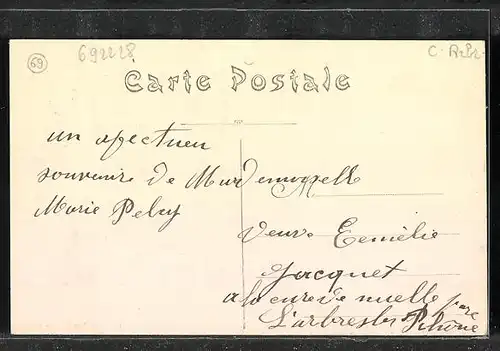 69
692228
Carte Postale
un afectueu
souvenire de Mardemoyselle
Marie Pelay
veuve Eemélie
Jacquet
a la cure de nuelle par
L'arbresles Rhône